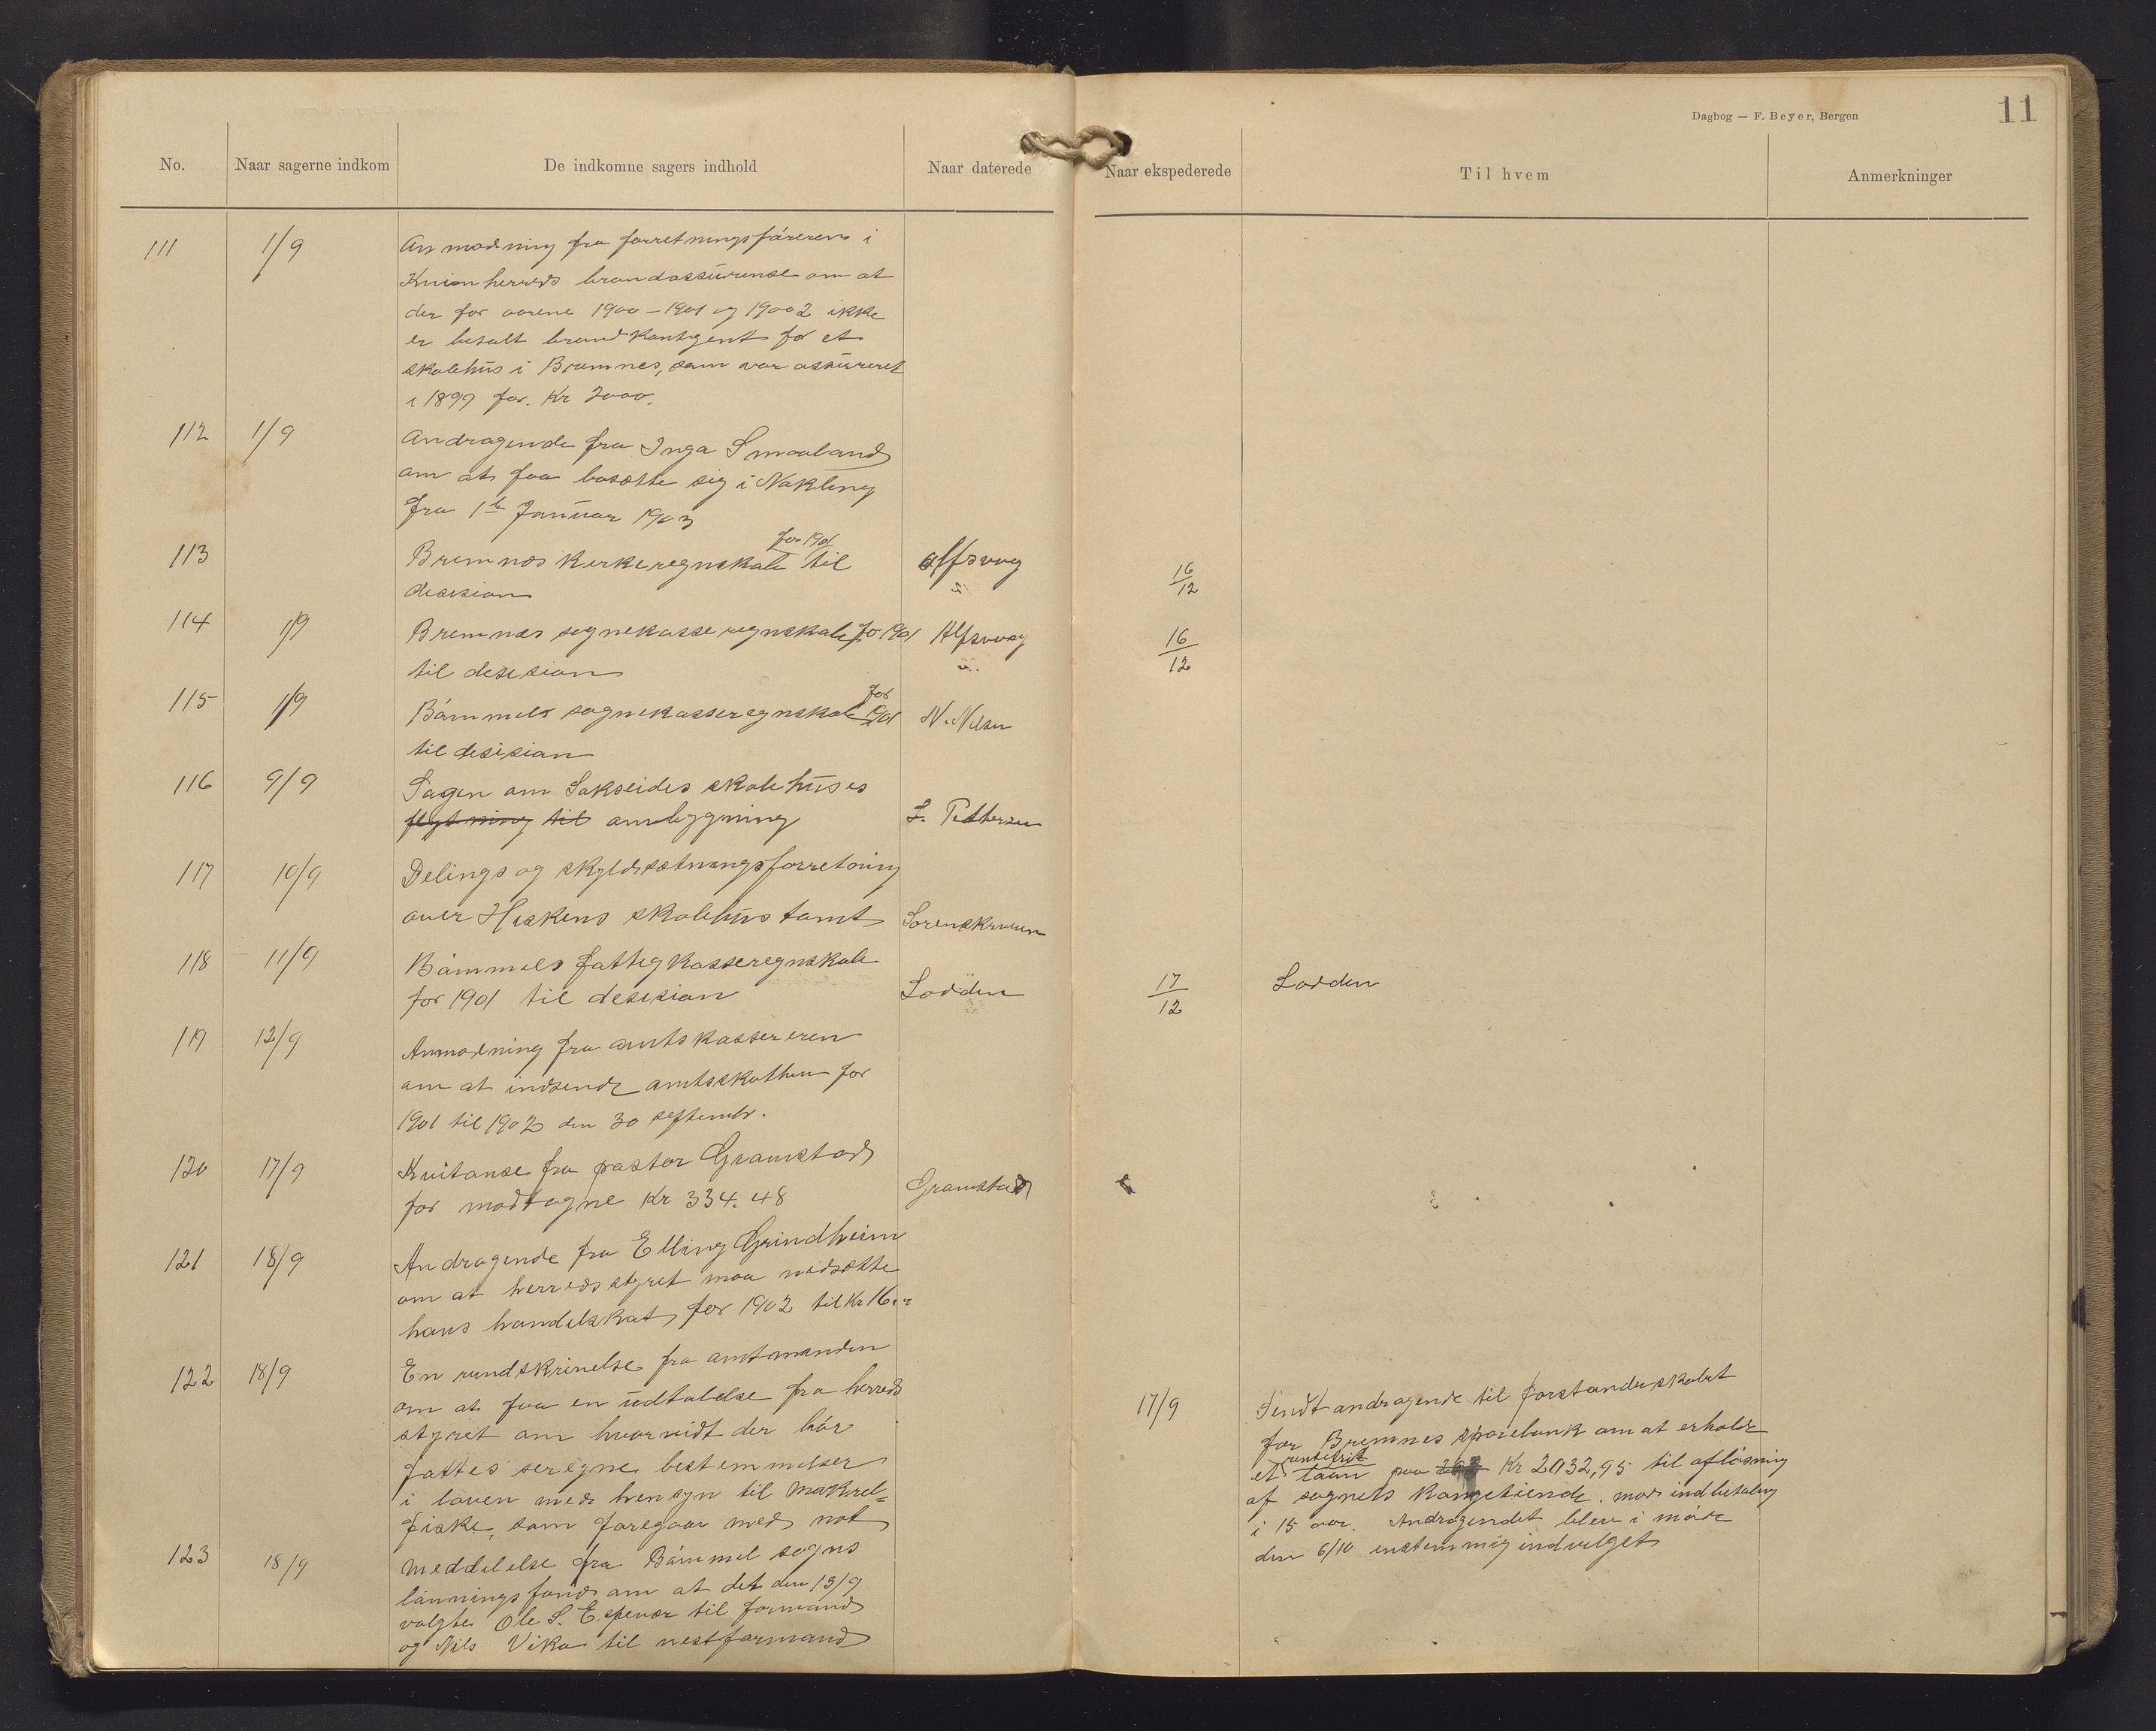 Dagbog — F. Beyer, Bergen
11
No.
Naar sagerne indkom
De indkomne sagers indhold
Naar daterede
Naar ekspederede
Til hvem
Anmerkninger
111 1/9 Anmodning fra forretningsføreren i
herreds brandassuranse om at
der for aarene 1900-1901 og 19002 ikke
er betalt brandkontigent for et
skolehus i Bremnes, som var assureret
i 1899 for Kr 2000.
112 1/9 Andragende fra Inga Smaaland
om at faa bosætte sig i Nokling
fra 1te Januar 1903
for 1901
113 Bremnes kirkeregnskab til Alfsvaag 16/12
desision "
114 1/9 Bremnes sognekasseregnskab for 1901 Alfsvaag 16/12
til desision "
for
115 1/9 Bømmels sognekasseregnskab 1901 N. Nilsen
til desision
116 9/9 Sagen om Sakseides skolehuses
flytning til ombygning S. Pettersen
117 10/9 Delings og skyldsætningsforretning
over Hiskens skolehustomt Sorenskriveren
118 11/9 Bømmels fattigkasseregnskab
for 1901 til desision Lodden 17/12 Lodden
119 12/9 Anmodning fra amtskassereren
om at indsende amtsskatten for
1901 til 1902 den 30 septembr.
120 17/9 Kvitanse fra pastor Gramstad
for modtagne Kr 334.48 Gramstad
121 18/9 Andragende fra Elling Grindheim
om at herredsstyret maa nedsætte
hans handelskat for 1902 til Kr 16
122 18/9 En rundskrivelse fra amtmanden
om at faa en udtalelse fra herreds
styret om hvorvidt der bør
fattes seregne bestemmelser
i loven med hensyn til makrel=
fiske, som foregaar med not
123 18/9 Meddelelse fra Bømmel sogns
lønningsfond om at det den 13/9
valgte Ole S. Espevær til formand
og Nils Vika til nestformand
17/9 Sendt andragende til forstanderskabet
for Bremnes sparebank om at erholde
rentefrit
et laan paa Kr 2032,95 til afløsning
af sognets kongetiende mod indbetaling
i 15 aar. Andragendet blev i møde
den 6/10 enstemmig indvilget